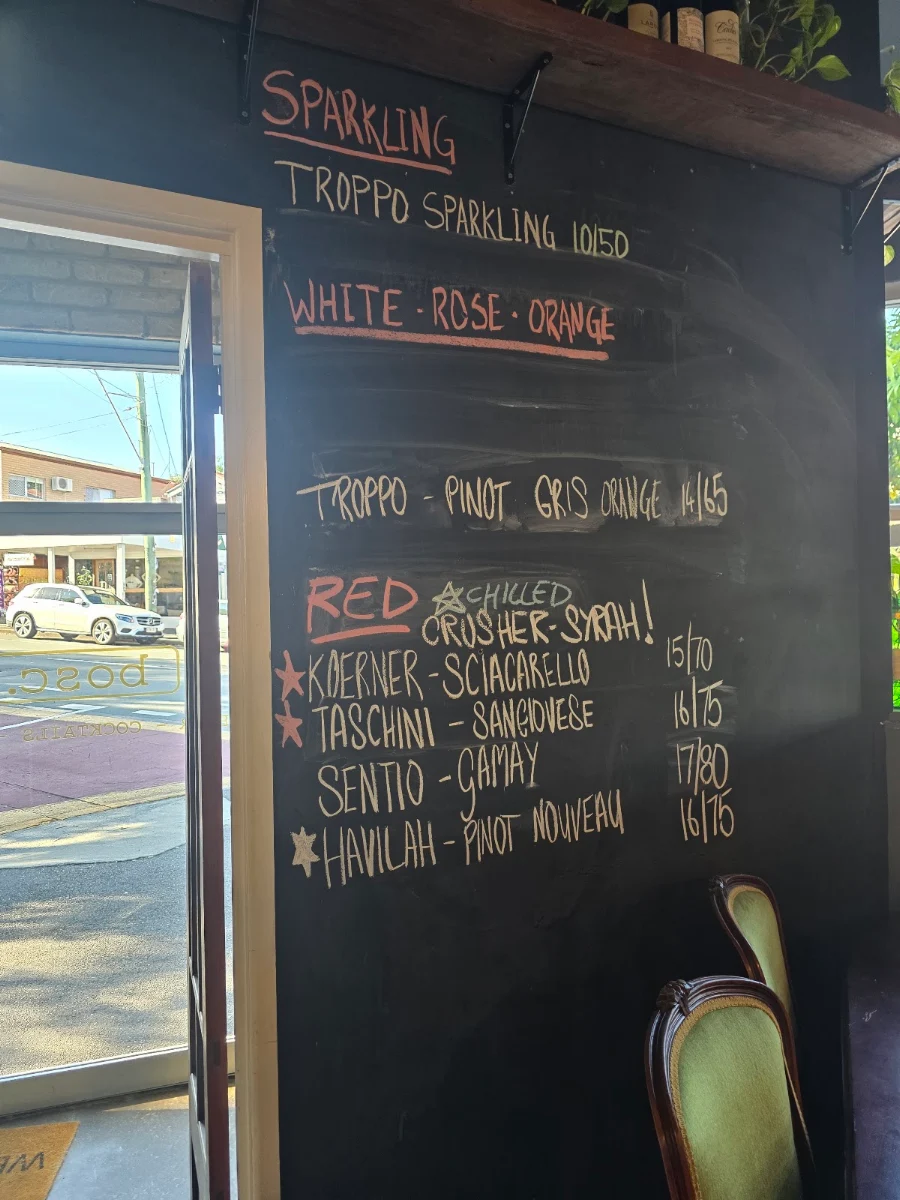 SPARKLING
TROPPO SPARKLING 10/50
WHITE · ROSE · ORANGE
TROPPO - PINOT GRIS ORANGE 14/65
RED ☆CHILLED
CRUSHER-SYRAH!
★KOERNER - SCIACARELLO 15/70
★TASCHINI - SANGIOVESE 16/75
SENTIO - GAMAY 17/80
★HAVILAH - PINOT NOUVEAU 16/75
bosc.
COCKTAILS